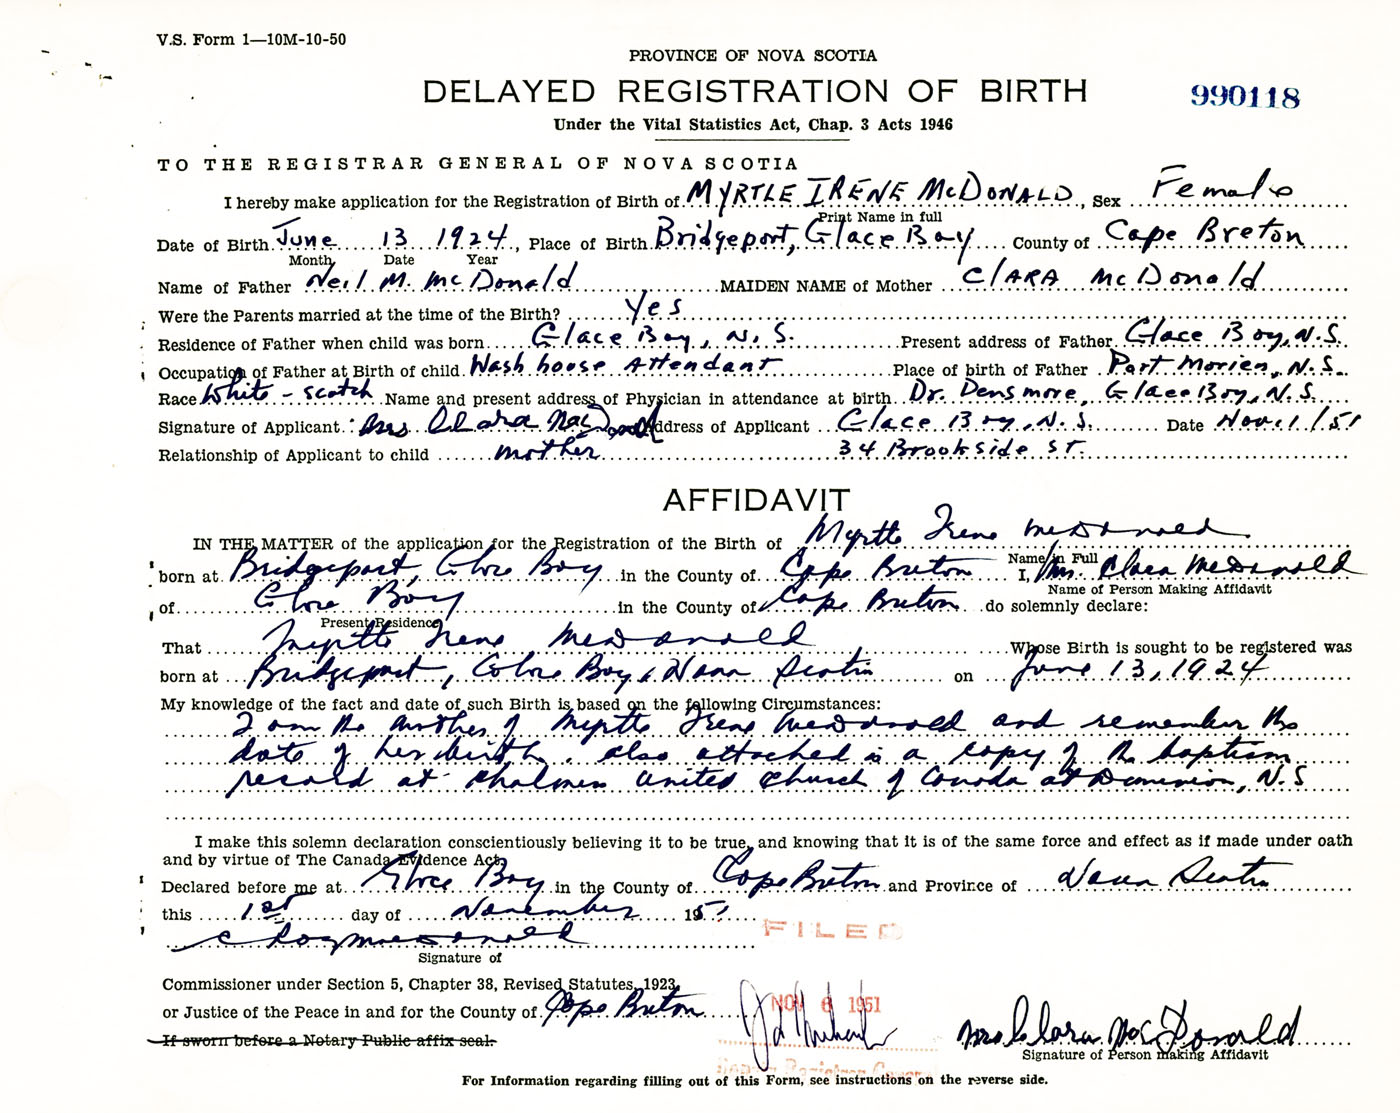 V.S. Form 1—10M-10-50
PROVINCE OF NOVA SCOTIA
DELAYED REGISTRATION OF BIRTH
990118
Under the Vital Statistics Act, Chap. 3 Acts 1946
TO THE REGISTRAR GENERAL OF NOVA SCOTIA
I hereby make application for the Registration of Birth of MYRTLE IRENE McDONALD, Sex Female
Print Name in full
Date of Birth June 13 1924, Place of Birth Bridgeport, Glace Bay County of Cape Breton
Month Date Year
Name of Father Neil M. McDonald MAIDEN NAME of Mother CLARA McDonald
Were the Parents married at the time of the Birth? Yes
Residence of Father when child was born Glace Bay, N.S. Present address of Father Glace Bay, N.S.
Occupation of Father at Birth of child Wash house Attendant Place of birth of Father Port Morien, N.S.
Race White - Scotch Name and present address of Physician in attendance at birth Dr. Densmore, Glace Bay, N.S.
Signature of Applicant Mrs Clara MacDonald Address of Applicant Glace Bay, N.S. Date Nov. 1/51
Relationship of Applicant to child mother 34 Brookside St.
AFFIDAVIT
IN THE MATTER of the application for the Registration of the Birth of Myrtle Irene McDonald
Name in Full
born at Bridgeport, Glace Bay in the County of Cape Breton I, Mrs. Clara McDonald
Name of Person Making Affidavit
of Glace Bay in the County of Cape Breton do solemnly declare:
Present Residence
That Myrtle Irene McDonald Whose Birth is sought to be registered was
born at Bridgeport, Glace Bay, Nova Scotia on June 13, 1924
My knowledge of the fact and date of such Birth is based on the following Circumstances:
I am the mother of Myrtle Irene McDonald and remember the
date of her birth. also attached is a copy of the baptism
record at Chalmers United Church of Canada at Dominion, N.S
I make this solemn declaration conscientiously believing it to be true, and knowing that it is of the same force and effect as if made under oath
and by virtue of The Canada Evidence Act.
Declared before me at Glace Bay in the County of Cape Breton and Province of Nova Scotia
this 1st day of November 1951
FILED
C Roy MacDonald
Signature of
Commissioner under Section 5, Chapter 38, Revised Statutes, 1923,
NOV 6 1951
or Justice of the Peace in and for the County of Cape Breton
If sworn before a Notary Public affix seal.
Mrs Clara MacDonald
Signature of Person making Affidavit
Deputy Registrar General
For Information regarding filling out of this Form, see instructions on the reverse side.